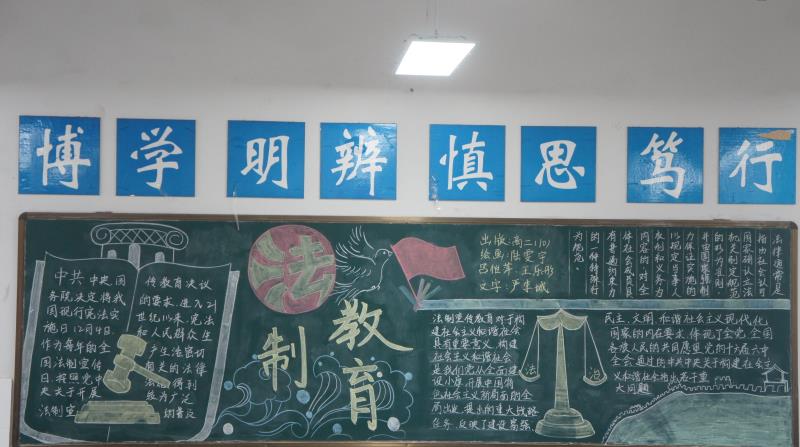 博学 明辨 慎思 笃行
中共中央、国
务院决定将我
国现行宪法实
施日12月4日
作为每年的全
国法制宣传
日。按照党中
央关于开展
法制宣
传教育决议
的要求,进入21
世纪以来,宪法
和人民群众生
产生活密切
相关的法律
法规得到
较为广泛
法
制
教育
出版:高二(10)
绘画:陈雯宇
吕恒萍、王乐彤
文字:严隽城
法律通常是
指由社会认可
国家确认立法
机关制定规范
的行为规则,
并由国家强制
力保证实施的
以规定当事人
权利和义务为
内容的,对全
体社会成员具
有普遍约束力
的一种特殊行
为规范。
法制宣传教育对于构
建社会主义和谐社会
具有重要意义。构建
社会主义和谐社会
是我们党从全面建
设小康、开展中国特
色社会主义新局面的全
局出发,提出的重大战略
任务,反映了建设富强、
法 治
民主、文明、和谐社会主义现代化
国家的内在要求,体现了全党全国
各族人民的共同愿望。党的十六届六中
全会通过的《中共中央关于构建社会主
义和谐社会的若干重
大问题